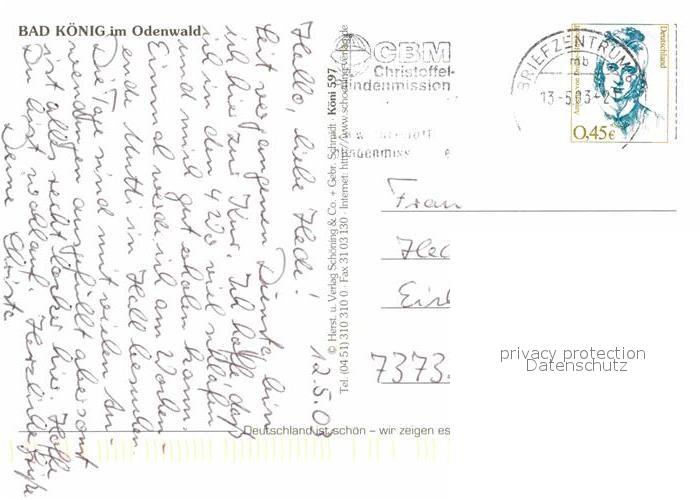 BAD KÖNIG im Odenwald
12.5.03
Hallo, liebe Hedi!
Seit vergangenen Dienstag bin
ich hier zur Kur. Ich hoffe, daß
ich in den 4 Wo viel schlafen
und mich gut erholen kann.
Ein mal werde ich am Wochen-
ende Mutti in Hall besuchen.
Die Tage sind mit vielen An-
wendungen ausgefüllt aber sonst
ist alles recht locker hier. Hoffe
Du bist wohlauf. Herzliche Grüße
Deine Christa
© Herst. u. Verlag Schöning & Co. + Gebr. Schmidt · Köni 597
Tel. (04 51) 310 310 0 · Fax 31 03 130 · Internet: http://www.schoening-verlag.de
CBM
Christoffel-
indenmission
BRIEFZENTRUM
mb
13-5.03-2
Deutschland
0,45€
Frau
7373
privacy protection
Datenschutz
Deutschland ist schön – wir zeigen es